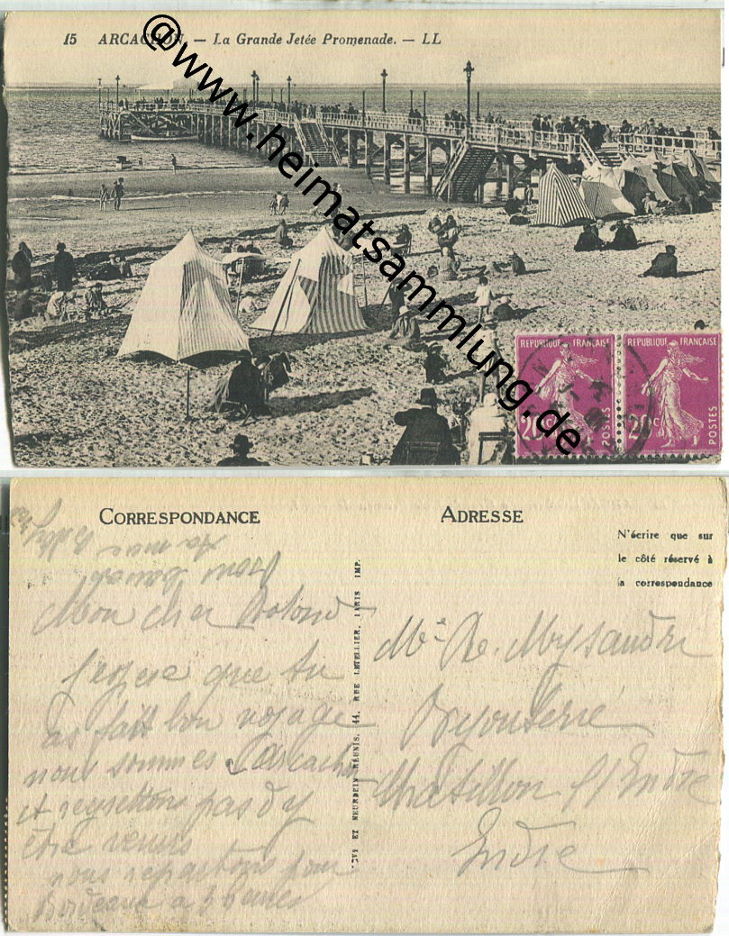 15 ARCACHON. — La Grande Jetée Promenade. — LL
@www.heimatsammlung.de
REPUBLIQUE FRANÇAISE
20c POSTES
REPUBLIQUE FRANÇAISE
20c POSTES
CORRESPONDANCE
Mon cher
j'espère que tu
as fait bon voyage
nous sommes Arcachon
et regrettons pas d'y
être venus
nous repartons pour
Bordeaux a 3 heures
LEVY ET NEURDEIN RÉUNIS, 44, RUE LETELLIER, PARIS IMP.
ADRESSE
N'écrire que sur
le côté réservé à
la correspondance
Mr
Bijouterie
Chatillon s/Indre
Indre